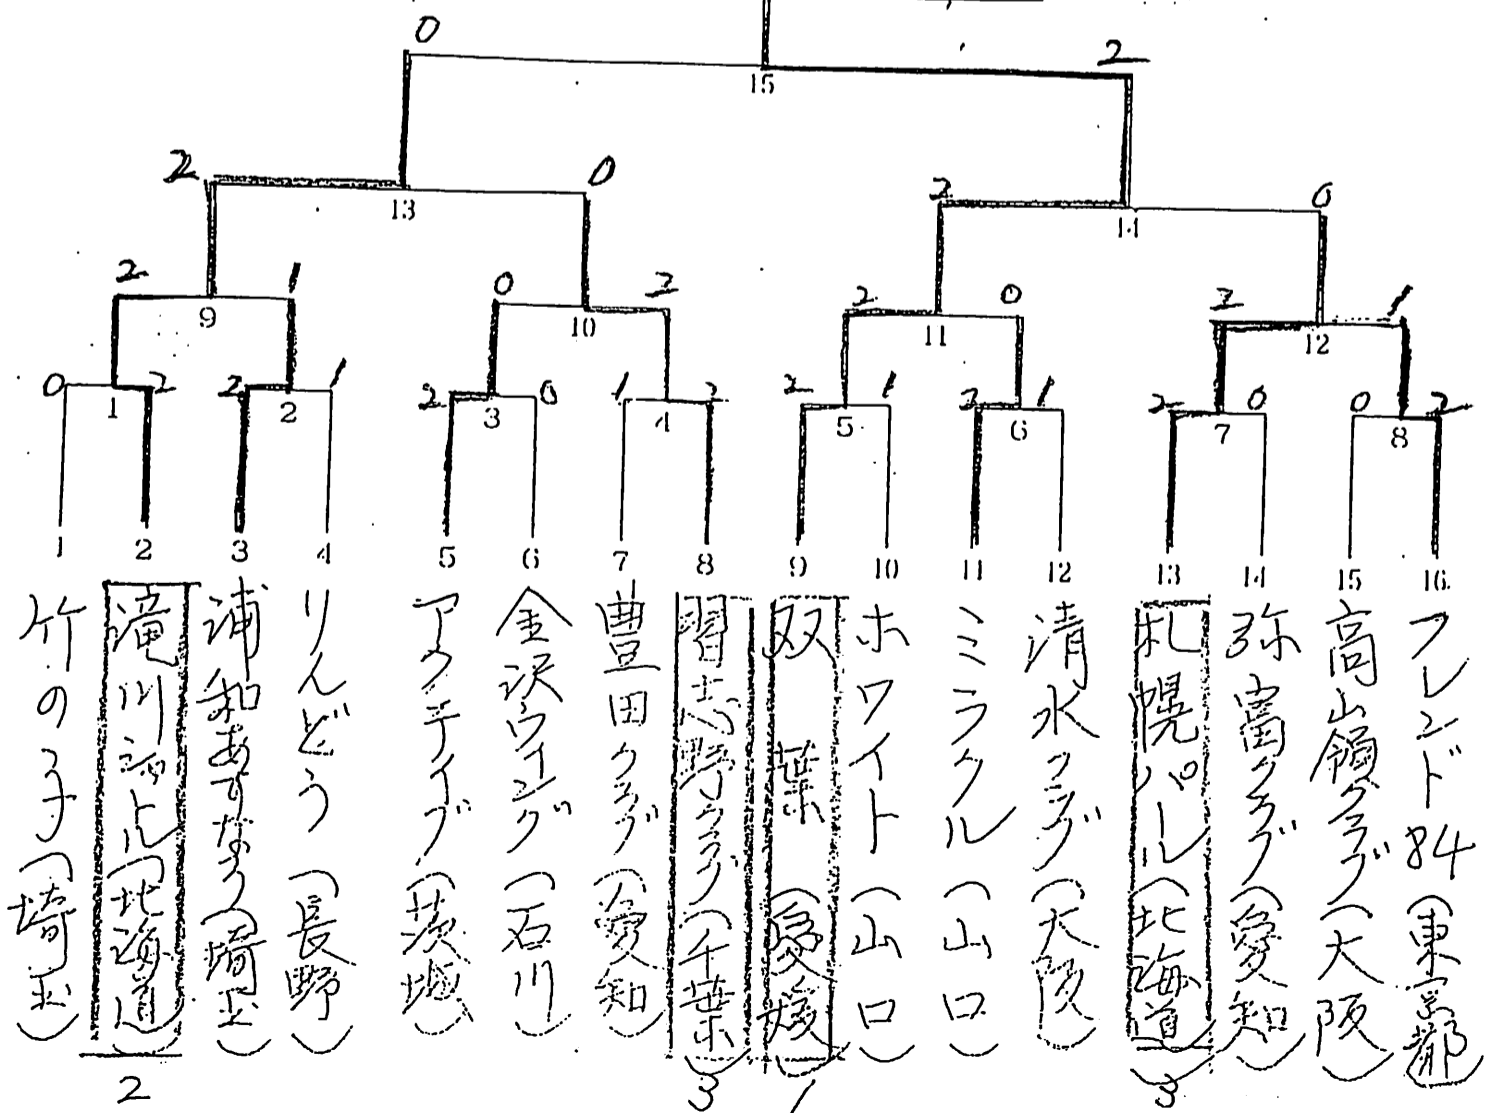 0 2
15
2 0 2 0
13 14
2 1 0 2 2 0 2 1
9 10 11 12
0 2 2 1 2 0 1 2 2 1 2 1 2 0 0 2
1 2 3 4 5 6 7 8
1 2 3 4 5 6 7 8 9 10 11 12 13 14 15 16
竹の子(埼玉)
滝川シャトル(北海道)
浦和あすなろ(埼玉)
りんどう(長野)
アクティブ(茨城)
金沢ウイング(石川)
豊田クラブ(愛知)
習志野クラブ(千葉)
双葉(愛媛)
ホワイト(山口)
ミラクル(山口)
清水クラブ(大阪)
札幌パール(北海道)
弥富クラブ(愛知)
高山額クラブ(大阪)
フレンド84(東京都)
2 3 1 3